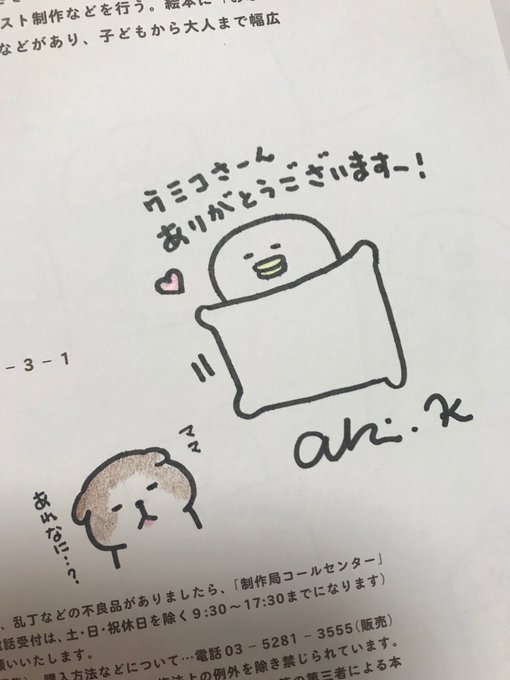 スト制作などを行う。絵本に「お
などがあり、子どもから大人まで幅広
ウミコさーん
ありがとうございますー!
-3-1
aki.K
ママ
あれなに…?
、乱丁などの不良品がありましたら、「制作局コールセンター」
電話受付は、土・日・祝休日を除く9:30〜17:30までになります)
願いいたします。
購入方法などについて…電話03-5281-3555(販売)
法上の例外を除き禁じられています。
第三者による本